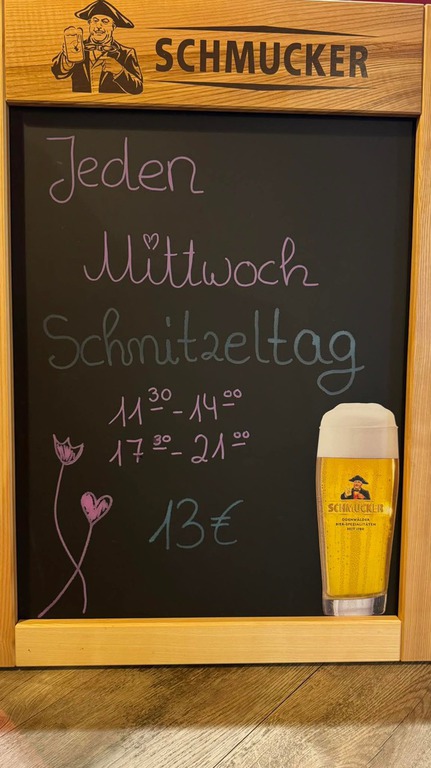 SCHMUCKER
Jeden
Mittwoch
Schnitzeltag
11³⁰-14⁰⁰
17³⁰-21⁰⁰
13€
SCHMUCKER
ODENWÄLDER
BIER-SPEZIALITÄTEN
SEIT 1780